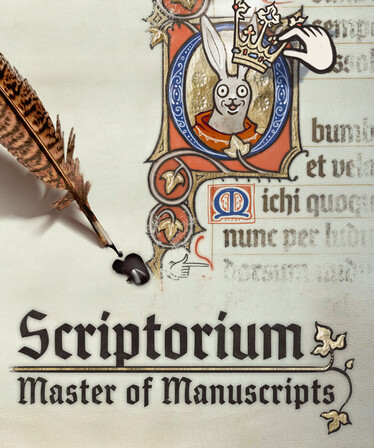 bumb
et vela
ichi quoqu
nunc per
dorsum
Scriptorium
Master of Manuscripts